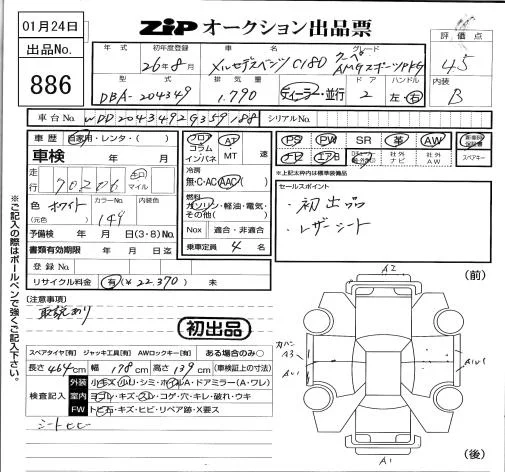 01月24日
ZIP オークション出品票
出品No.
886
年式 初年度登録 車名 グレード 評価点
26年8月 メルセデスベンツ C180 クーペ AMGスポーツPKG 4.5
型式 排気量 ドア ハンドル 内装
DBA-204349 1.790 ディーラー・並行 2 左・右 B
車台No. WDD2043492G359188 シリアルNo.
車歴 自家用・レンタ・( )
車検 年 月
走行 70206 キロ マイル
色 ホワイト カラーNo. 149 内装色
(元色)
予備検 年 月 日(3・8)No.
書類有効期限 年 月 日迄
登録No.
リサイクル料金 有(¥22.370) 未
フロア コラム インパネ
AT MT 速
冷房
無・C・AC AAC
燃料
ガソリン・軽油・電気・その他( )
Nox 適合・非適合
乗車定員 4 名
PS PW SR 革 AW
ナビ エアB
社外ナビ 社外AW
スペアキー
※上記太枠内は標準装備品
セールスポイント
・初出品
・レザーシート
※ご記入の際はボールペンで強くご記入下さい。
(注意事項)
取説あり
初出品
スペアタイヤ[有] ジャッキ工具[有] AWロックキー[有] ある場合のみ○
長さ 464cm 幅 178cm 高さ 139cm (車検証上の寸法)
検査記入
外装 小キズ・小U・シミ・ホイルA・ドアミラー(A・ワレ)
室内 ヨゴレ・キズ・スレ・コゲ・穴・キレ・破れ・ウキ
FW トビ石・キズ・ヒビ・リペア跡・X要ス
シートヒビ
(前)
A2
カバン
A3
AU1
AU1
A1
(後)